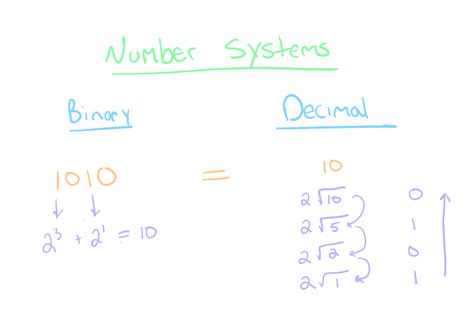 Number Systems
Binary Decimal
1010 = 10
2³ + 2¹ = 10
2√10 0
2√5 1
2√2 0
2√1 1